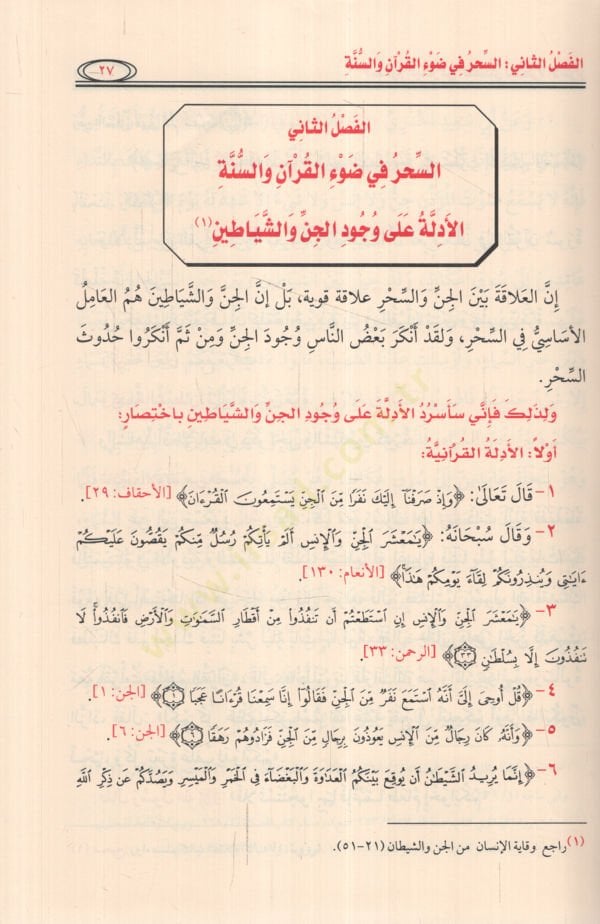 الفَصْلُ الثَّاني: السِّحرُ في ضَوْءِ القُرْآنِ وَالسُّنَّةِ
٢٧
الفَصْلُ الثَّانِي
السِّحرُ فِي ضَوْءِ القُرْآنِ وَالسُّنَّةِ
الأَدِلَّةُ عَلَى وُجُودِ الجِنِّ وَالشَّيَاطِينِ(١)
إِنَّ العَلاقَةَ بَيْنَ الجِنِّ وَالسِّحْرِ علاقة قوية، بَلْ إِنَّ الجِنَّ وَالشَّيَاطِينَ هُمُ العَامِلُ
الأسَاسِيُّ فِي السِّحْرِ، وَلَقَدْ أَنْكَرَ بَعْضُ النَّاسِ وُجُودَ الجِنِّ وَمِنْ ثَمَّ أَنْكَرُوا حُدُوثَ
السِّحْرِ.
وَلِذَلِكَ فَإِنِّي سَأَسْرُدُ الأَدِلَّةَ عَلَى وُجُودِ الجِنِّ وَالشَّيَاطِينِ بِاخْتِصَارٍ:
أوَلاً: الأَدِلَةُ القُرْآنِيَّةُ:
١- قَالَ تَعَالَى: ﴿وَإِذْ صَرَفْنَآ إِلَيْكَ نَفَرًا مِّنَ ٱلْجِنِّ يَسْتَمِعُونَ ٱلْقُرْءَانَ﴾ [الأحقاف: ٢٩].
٢- وَقَالَ سُبْحَانَهُ: ﴿يَـٰمَعْشَرَ ٱلْجِنِّ وَٱلْإِنسِ أَلَمْ يَأْتِكُمْ رُسُلٌ مِّنكُمْ يَقُصُّونَ عَلَيْكُمْ
ءَايَـٰتِى وَيُنذِرُونَكُمْ لِقَآءَ يَوْمِكُمْ هَـٰذَا﴾ [الأنعام: ١٣٠].
٣- ﴿يَـٰمَعْشَرَ ٱلْجِنِّ وَٱلْإِنسِ إِنِ ٱسْتَطَعْتُمْ أَن تَنفُذُوا۟ مِنْ أَقْطَارِ ٱلسَّمَـٰوَٰتِ وَٱلْأَرْضِ فَٱنفُذُوا۟ لَا
تَنفُذُونَ إِلَّا بِسُلْطَـٰنٍ ٣٣﴾ [الرحمن: ٣٣].
٤- ﴿قُلْ أُوحِىَ إِلَىَّ أَنَّهُ ٱسْتَمَعَ نَفَرٌ مِّنَ ٱلْجِنِّ فَقَالُوٓا۟ إِنَّا سَمِعْنَا قُرْءَانًا عَجَبًا ١﴾ [الجن: ١].
٥- ﴿وَأَنَّهُۥ كَانَ رِجَالٌ مِّنَ ٱلْإِنسِ يَعُوذُونَ بِرِجَالٍ مِّنَ ٱلْجِنِّ فَزَادُوهُمْ رَهَقًا ٦﴾ [الجن: ٦].
٦- ﴿إِنَّمَا يُرِيدُ ٱلشَّيْطَـٰنُ أَن يُوقِعَ بَيْنَكُمُ ٱلْعَدَٰوَةَ وَٱلْبَغْضَآءَ فِى ٱلْخَمْرِ وَٱلْمَيْسِرِ وَيَصُدَّكُمْ عَن ذِكْرِ ٱللَّهِ
(١) راجع وقاية الإنسان من الجن والشيطان (٢١-٥١).